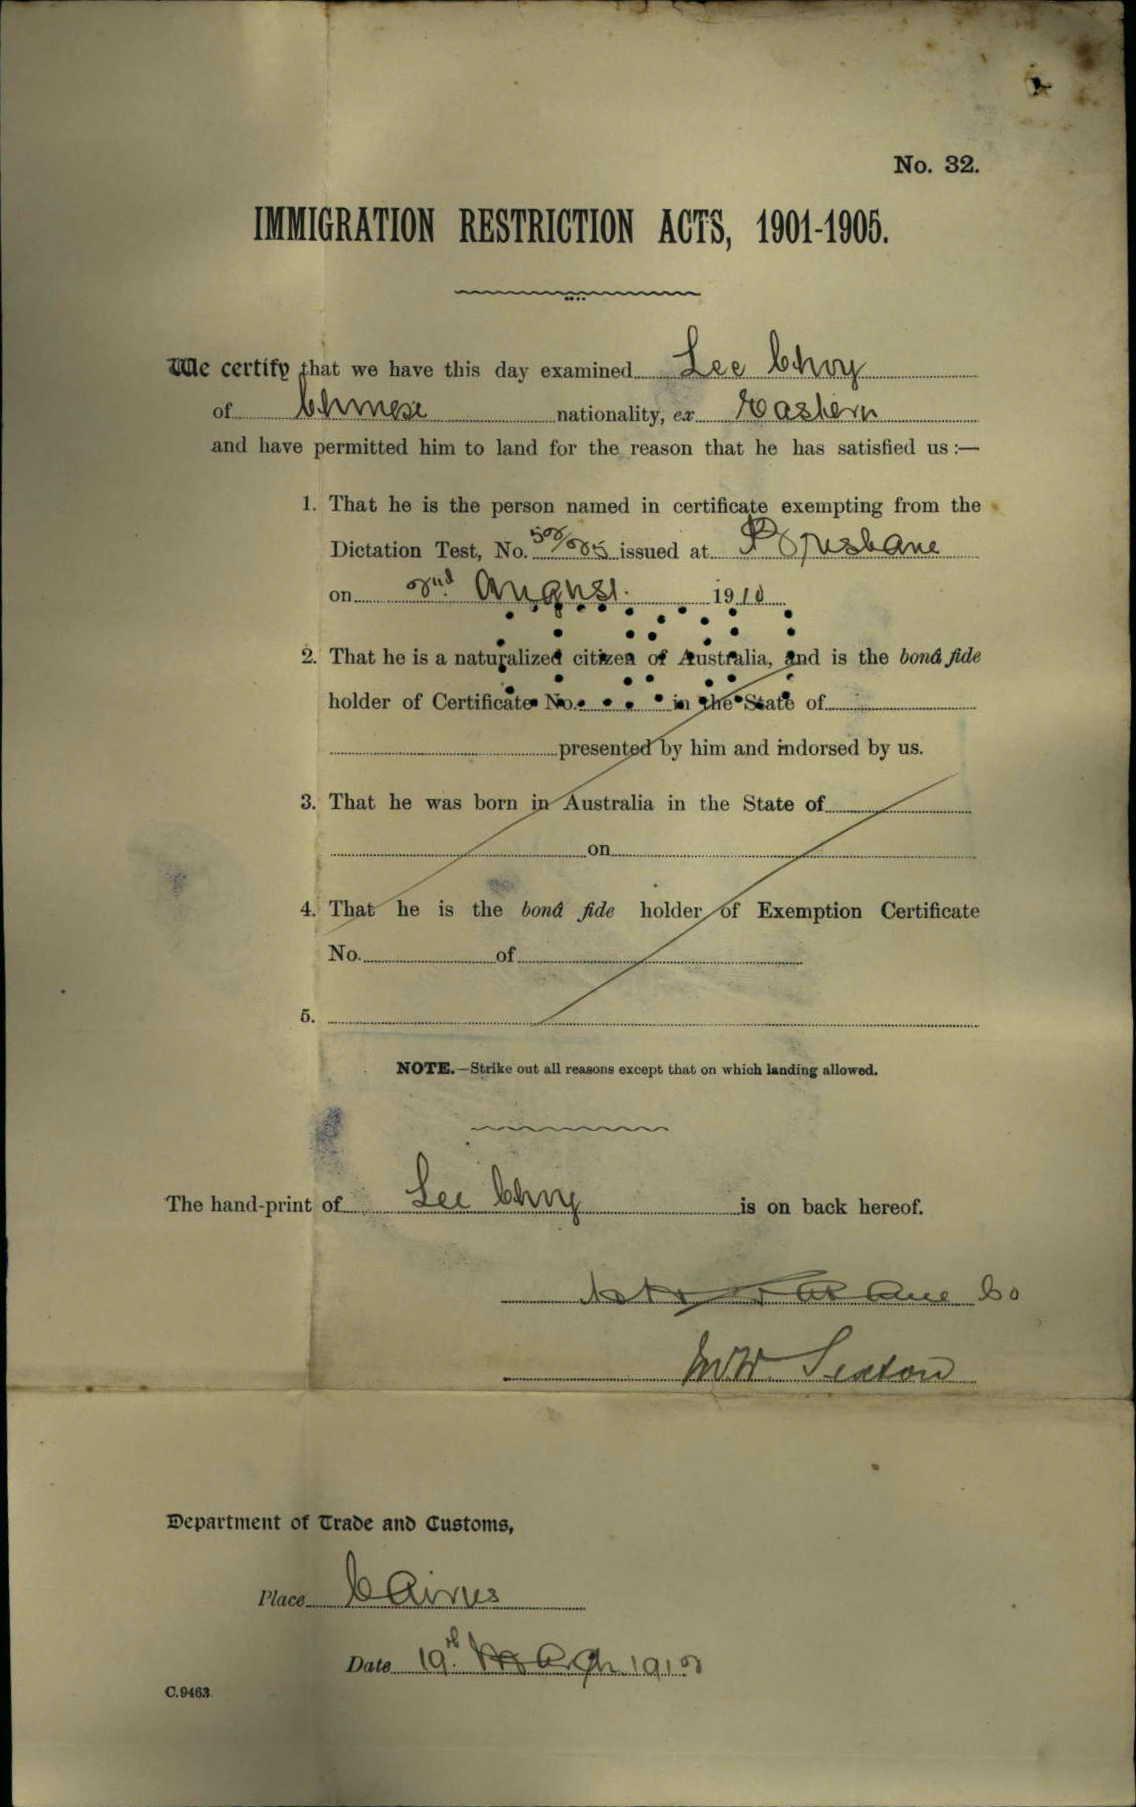 No. 32.
IMMIGRATION RESTRICTION ACTS, 1901-1905.
We certify that we have this day examined Lee Choy
of Chinese nationality, ex Eastern
and have permitted him to land for the reason that he has satisfied us :—
1. That he is the person named in certificate exempting from the
Dictation Test, No. issued at Brisbane
on 2nd August 1910
2. That he is a naturalized citizen of Australia, and is the bonâ fide
holder of Certificate No. in the State of
presented by him and indorsed by us.
3. That he was born in Australia in the State of
on
4. That he is the bonâ fide holder of Exemption Certificate
No. of
5.
NOTE.—Strike out all reasons except that on which landing allowed.
The hand-print of Lee Choy is on back hereof.
Co
W. Sexton
Department of Trade and Customs,
Place Cairns
Date 19th March 1912
C.9463.